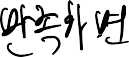 만족하면